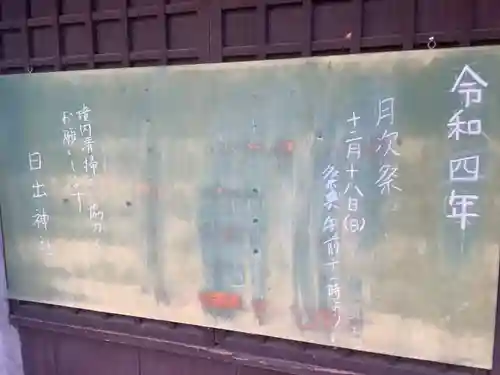 令和四年
月次祭
十二月十八日(日)
祭典午前十一時より
境内清掃 協力
お願いします
日出神社